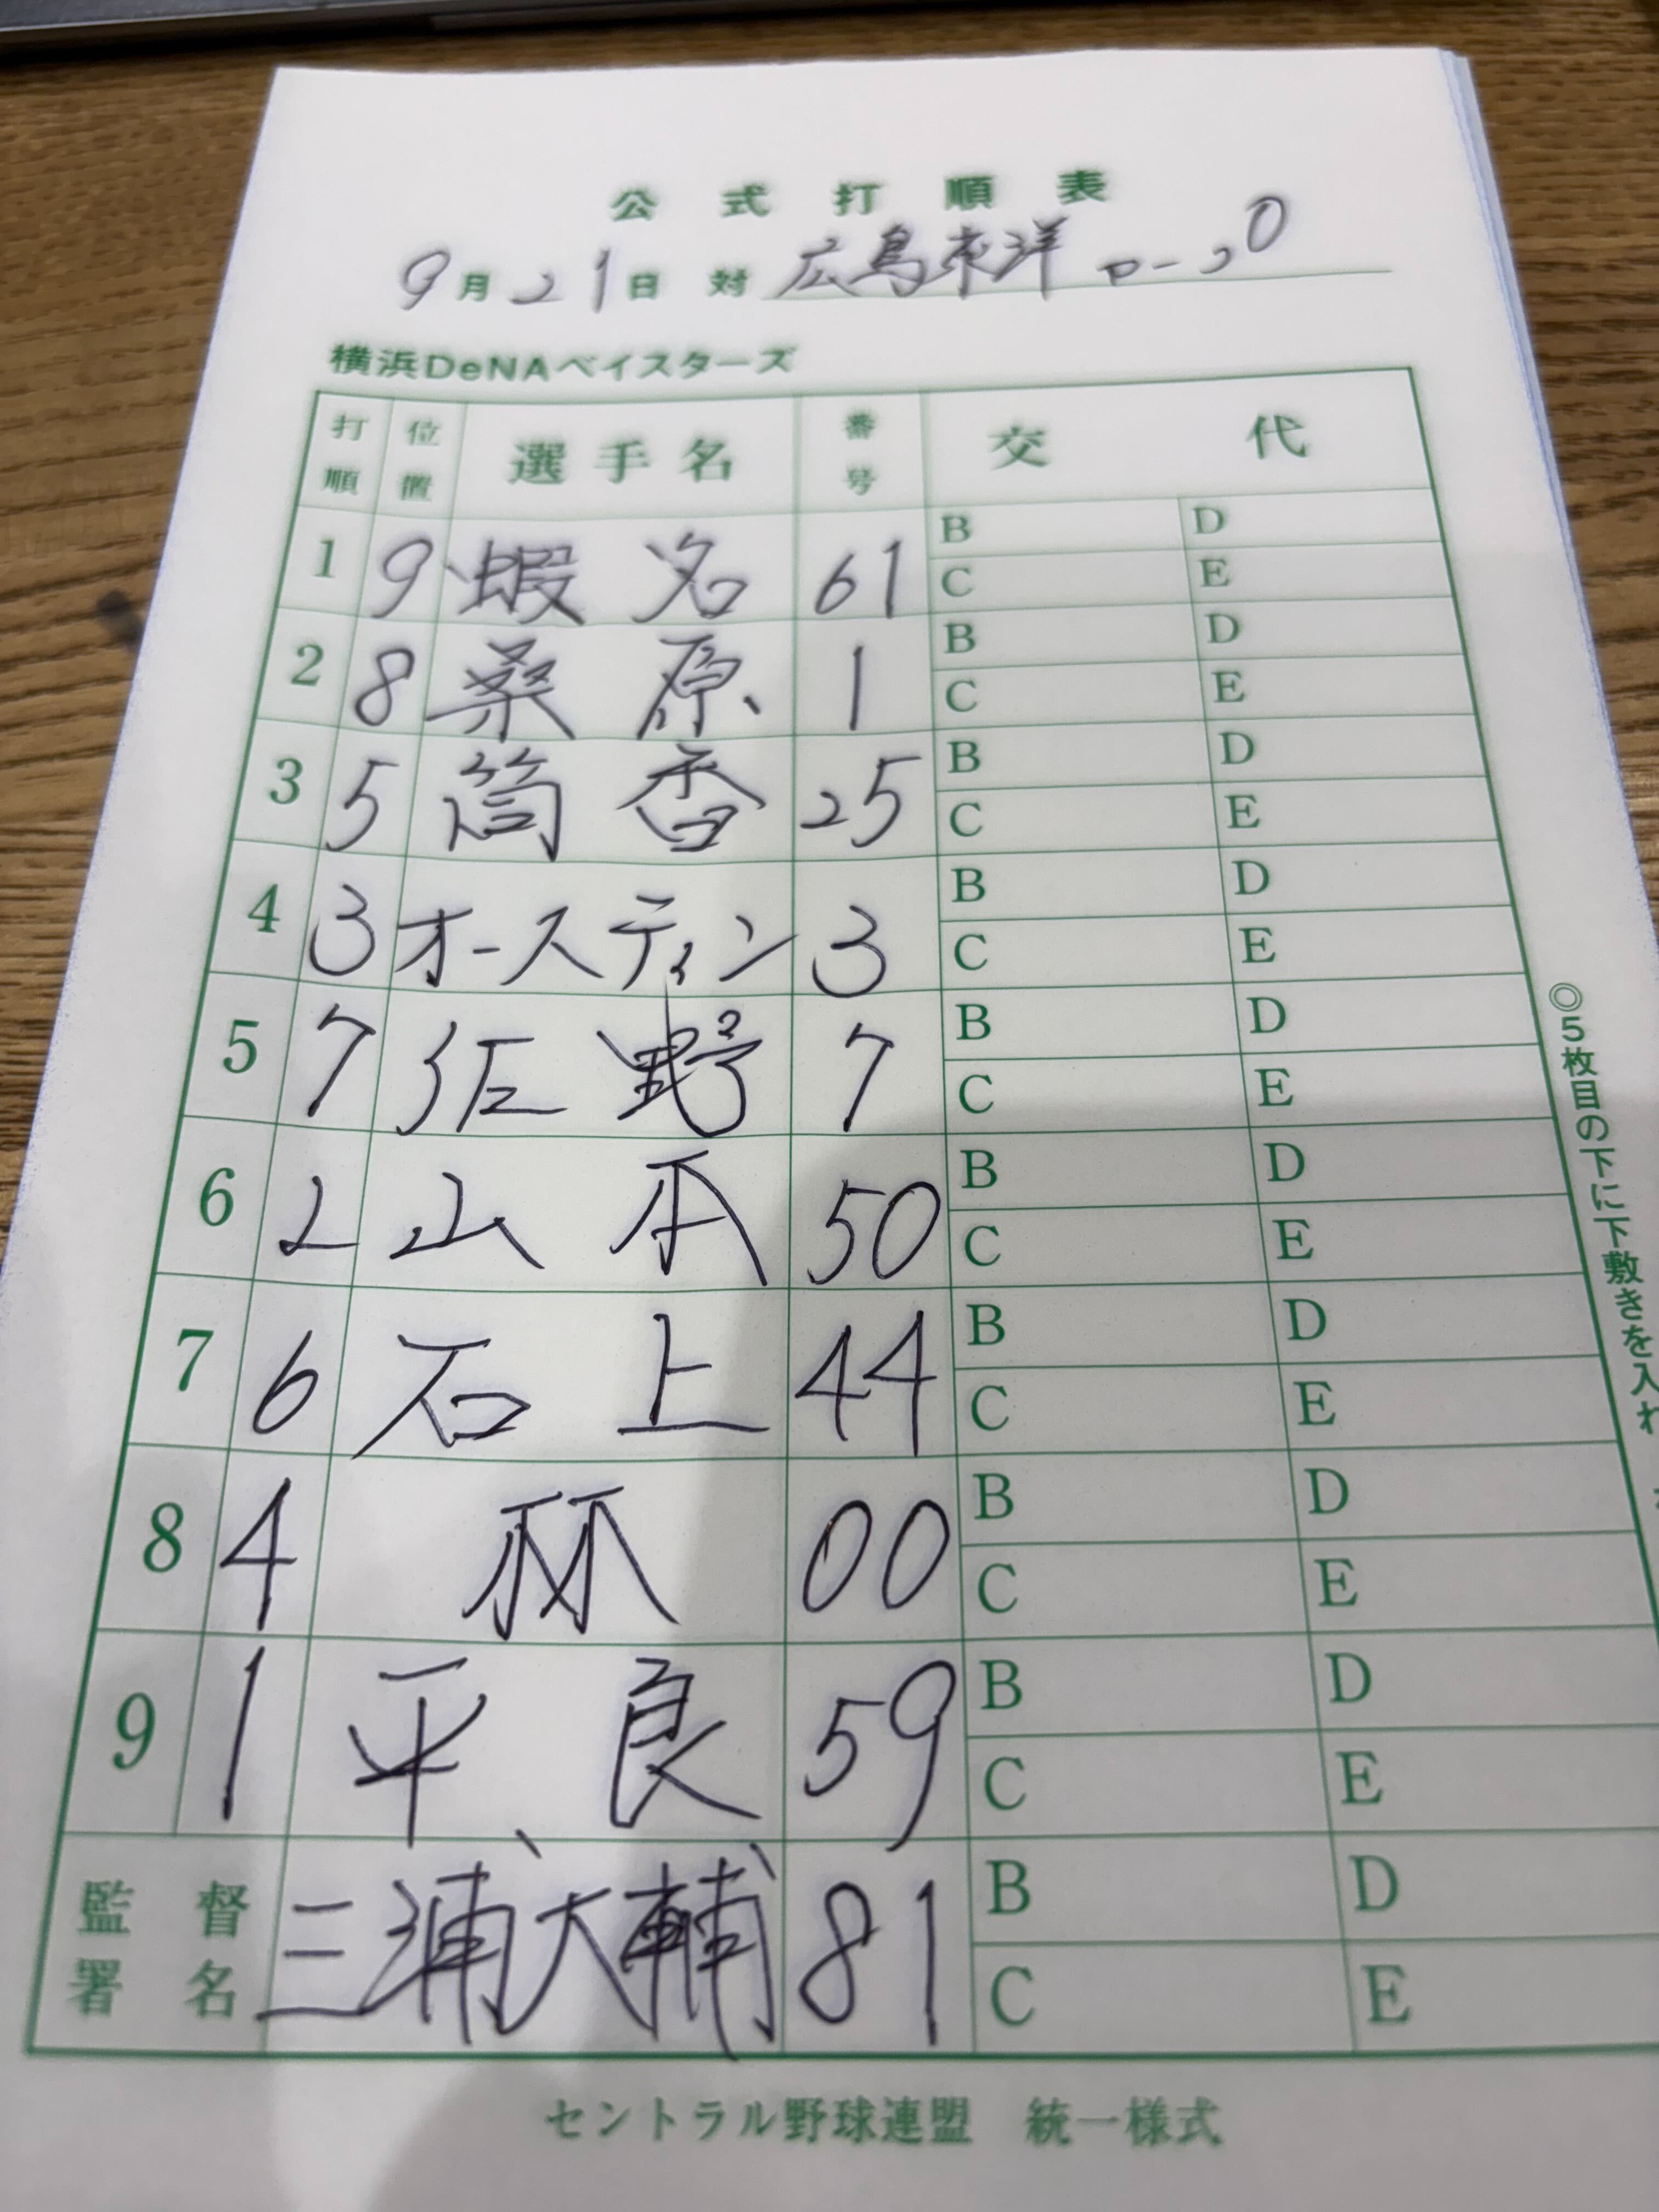 公式打順表
9月21日 対 広島東洋カープ
横浜DeNAベイスターズ
打順 位置 選手名 番号 交代
1 9 蝦名 61 B D
C E
2 8 桑原 1 B D
C E
3 5 筒香 25 B D
C E
4 3 オースティン 3 B D
C E
5 7 佐野 7 B D
C E
6 2 山本 50 B D
C E
7 6 石上 44 B D
C E
8 4 林 00 B D
C E
9 1 平良 59 B D
C E
監督署名 三浦大輔 81 B D
C E
◎5枚目の下に下敷きを入れ
セントラル野球連盟 統一様式